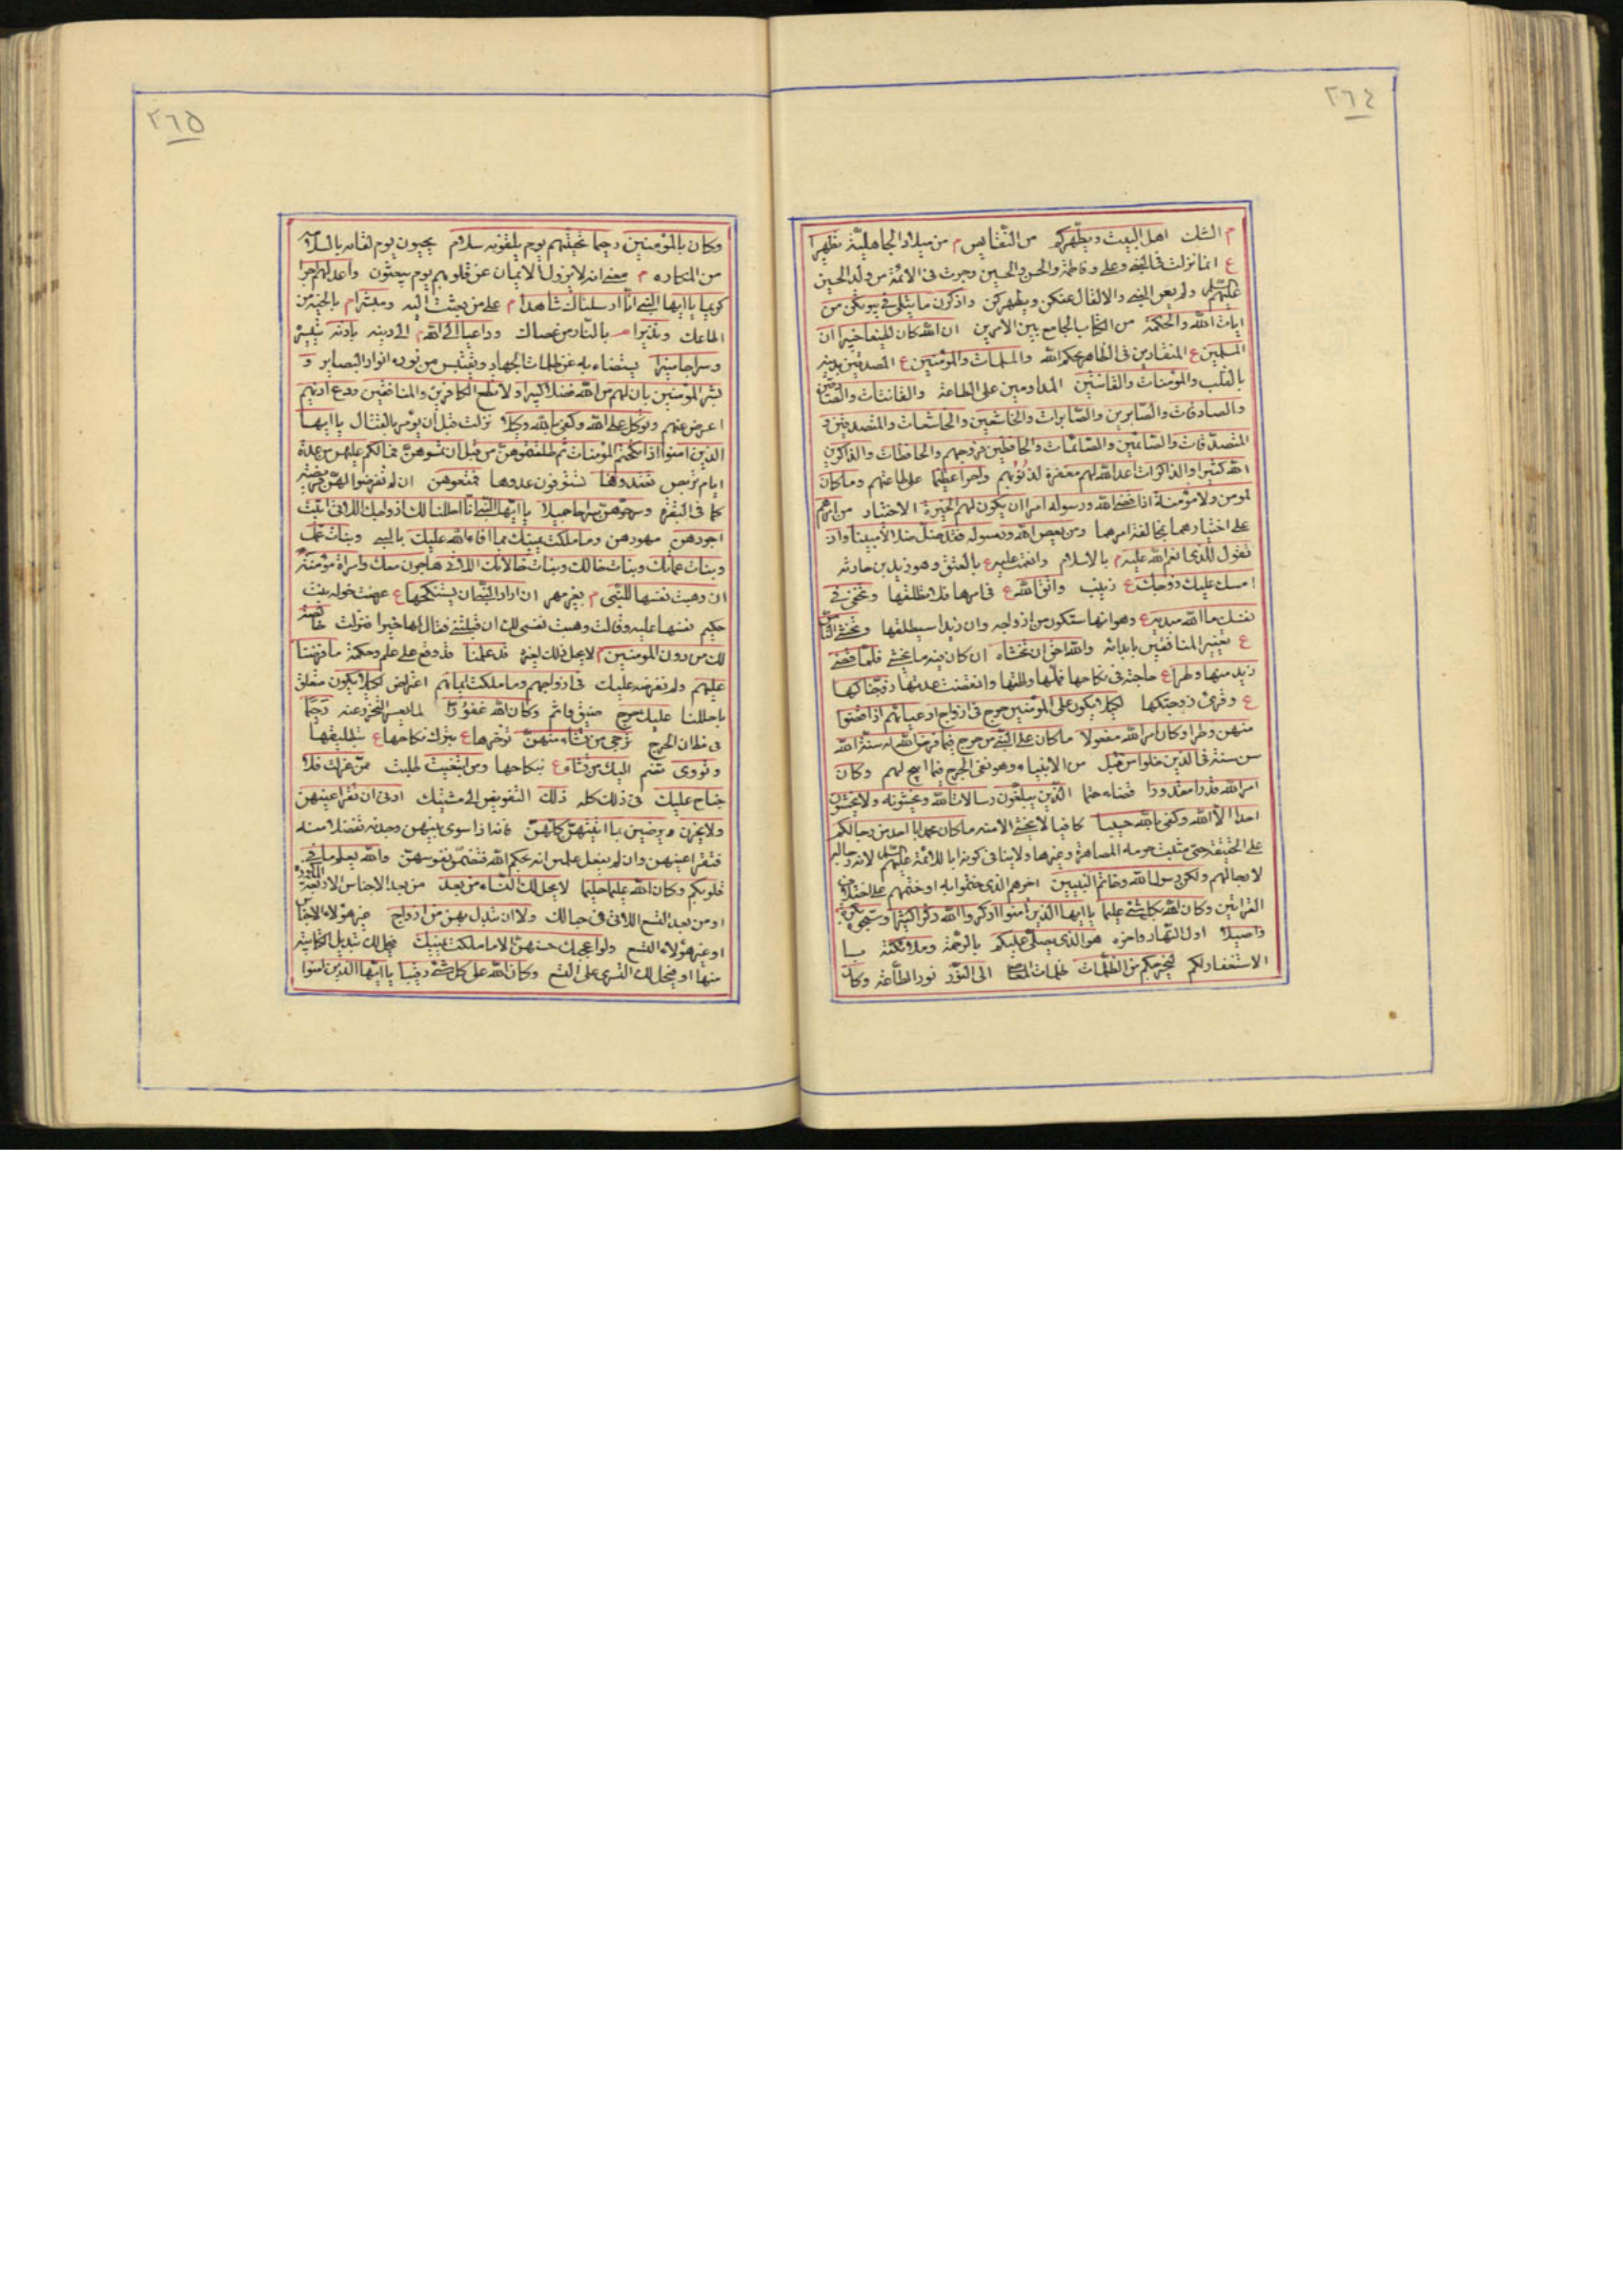 ٢٦٤
م الشك اهل البيت ويطهركم من النقايص م من ميلاد الجاهلية تطهيرا
ع انما نزلت فى النبى وعلى وفاطمة والحسن والحسين وجرت فى الائمة من ولد الحسين
عليهم السلم ولم يعن النبى والا لقال عنكن ويطهركن واذكرن ما يتلى فى بيوتكن من
ايات الله والحكمة من الكتاب الجامع بين الامرين ان الله كان لطيفا خبيرا ان
المسلمين ع المنقادين فى الظاهر بحكم الله والمسلمات والمؤمنين ع المصدقين بدينه
بالقلب والمؤمنات والقانتين المداومين على الطاعة والقانتات والصادقين
والصادقات والصابرين والصابرات والخاشعين والخاشعات والمتصدقين و
المتصدقات والصائمين والصائمات والحافظين فروجهم والحافظات والذاكرين
الله كثيرا والذاكرات اعد الله لهم مغفرة لذنوبهم واجرا عظيما على طاعتهم وما كان
لمومن ولا مؤمنة اذا قضى الله ورسوله امرا ان يكون لهم الخيرة الاختيار من امرهم
على اختيارهما بمخالفة امرهما ومن يعص الله ورسوله فقد ضل ضلالا مبينا واذ
تقول للذى انعم الله عليه م بالاسلام وانعمت عليه ع بالعتق وهو زيد بن حارثه
امسك عليك زوجك ع زينب واتق الله ع فى امرها فلا تطلقها وتخفى فى
نفسك ما الله مبديه ع وهو انها ستكون من ازواجه وان زيدا سيطلقها وتخشى الناس
ع تعيير المنافقين بابدائه والله احق ان تخشاه ان كان فيه ما يخشى فلما قضى
زيد منها وطرا ع حاجته فى نكاحها فملها وطلقها وانقضت عدتها زوجناكها
ع وقرئ زوجتكها لكيلا يكون على المؤمنين حرج فى ازواج ادعيائهم اذا قضوا
منهن وطرا وكان امر الله مفعولا ما كان على النبى من حرج فيما فرض الله له سنة الله
سن سنته فى الذين خلوا من قبل من الانبياء وهو نفى الحرج فيما ابيح لهم وكان
امر الله قدرا مقدورا قضاء حتما الذين يبلغون رسالات الله ويخشونه ولا يخشون
احدا الا الله وكفى بالله حسيبا كافيا لا يخشى الا منه ما كان محمد ابا احد من رجالكم
على الحقيقة حتى يثبت حرمة المصاهرة وغيرها ولا ينافى كونه ابا للائمة عليهم السلم لانهم رجاله
لا رجالهم ولكن رسول الله وخاتم النبيين اخرهم الذى ختموا به او ختمهم على اختلاف
القرائتين وكان الله بكل شئ عليما يا ايها الذين امنوا اذكروا الله ذكرا كثيرا وسبحوه بكرة
واصيلا اول النهار واخره هو الذى يصلى عليكم بالرحمة وملائكته با
الاستغفار لكم ليخرجكم من الظلمات ظلمات المعاصى الى النور نور الطاعة وكان
٢٦٥
وكان بالمؤمنين رحيما تحيتهم يوم يلقونه سلام يحيون يوم لقائه بالسلامة
من المكاره م معنى انه لا يزول الايمان عن قلوبهم يوم يبعثون واعد لهم اجرا
كريما يا ايها النبى انا ارسلناك شاهدا م على من بعثت اليه ومبشرا م بالجنة من
اطاعك ونذيرا م بالنار من عصاك وداعيا الى الله م الى دينه باذنه بتيسيره
وسراجا منيرا يستضاء به عن ظلمات الجهاد ويقتبس من نوره انوار البصاير و
بشر المؤمنين بان لهم من الله فضلا كبيرا ولا تطع الكافرين والمنافقين ودع اذيهم
اعرض عنهم وتوكل على الله وكفى بالله وكيلا نزلت قبل ان يؤمر بالقتال يا ايها
الذين امنوا اذا نكحتم المؤمنات ثم طلقتموهن من قبل ان تمسوهن فما لكم عليهن من عدة
ايام تربص تعتدونها تستوفون عددها فمتعوهن ان لم تفرضوا لهن فريضة
كما فى البقرة وسرحوهن سراحا جميلا يا ايها النبى انا احللنا لك ازواجك اللاتى اتيت
اجورهن مهورهن وما ملكت يمينك مما افاء الله عليك بالسبى وبنات عمك
وبنات عماتك وبنات خالك وبنات خالاتك اللاتى هاجرن معك وامراة مؤمنة
ان وهبت نفسها للنبى م بغير مهر ان اراد النبى ان يستنكحها ع عرضت خولة بنت
حكيم نفسها عليه وقالت وهبت نفسى لك ان قبلتنى فقال لها خيرا فنزلت خالصة
لك من دون المومنين م لا يحل ذلك لغيره قد علمنا قد وقع على علم وحكمة ما فرضنا
عليهم ولم نفرضه عليك فى ازواجهم وما ملكت ايمانهم اعتراض لكيلا يكون متعلق
باحللنا عليك حرج ضيق فاثم وكان الله غفورا لما يعسر التحرز عنه رحيما
فى مظان الحرج ترجى من تشاء منهن تؤخرها ع بترك نكاحها ع بتطليقها
وتؤوى تضم اليك من تشاء ع بنكاحها ومن ابتغيت طلبت ممن عزلت فلا
جناح عليك فى ذلك كله ذلك التفويض الى مشيتك ادنى ان تقر اعينهن
ولا يحزن ويرضين بما اتيتهن كلهن فانه اذا سوى بينهن وجدنه تفضلا منه
فتقر اعينهن وان لم يفعل علمن انه بحكم الله فتطمئن نفوسهن والله يعلم ما فى
قلوبكم وكان الله عليما حليما لا يحل لك النساء من بعد من بعد الاجناس الاربعة المذكورة
او من بعد التسع اللاتى فى حبالك ولا ان تبدل بهن من ازواج غير هؤلاء الاجناس
او غير هؤلاء التسع ولو اعجبك حسنهن الا ما ملكت يمينك فيحل لك تبديل الكتابية
منها او فيحل لك التسرى على التسع وكان الله على كل شئ رقيبا يا ايها الذين امنوا